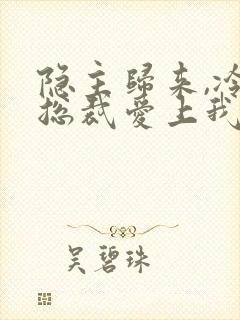 隐主歸来,冷
总裁爱上我
吴碧珠